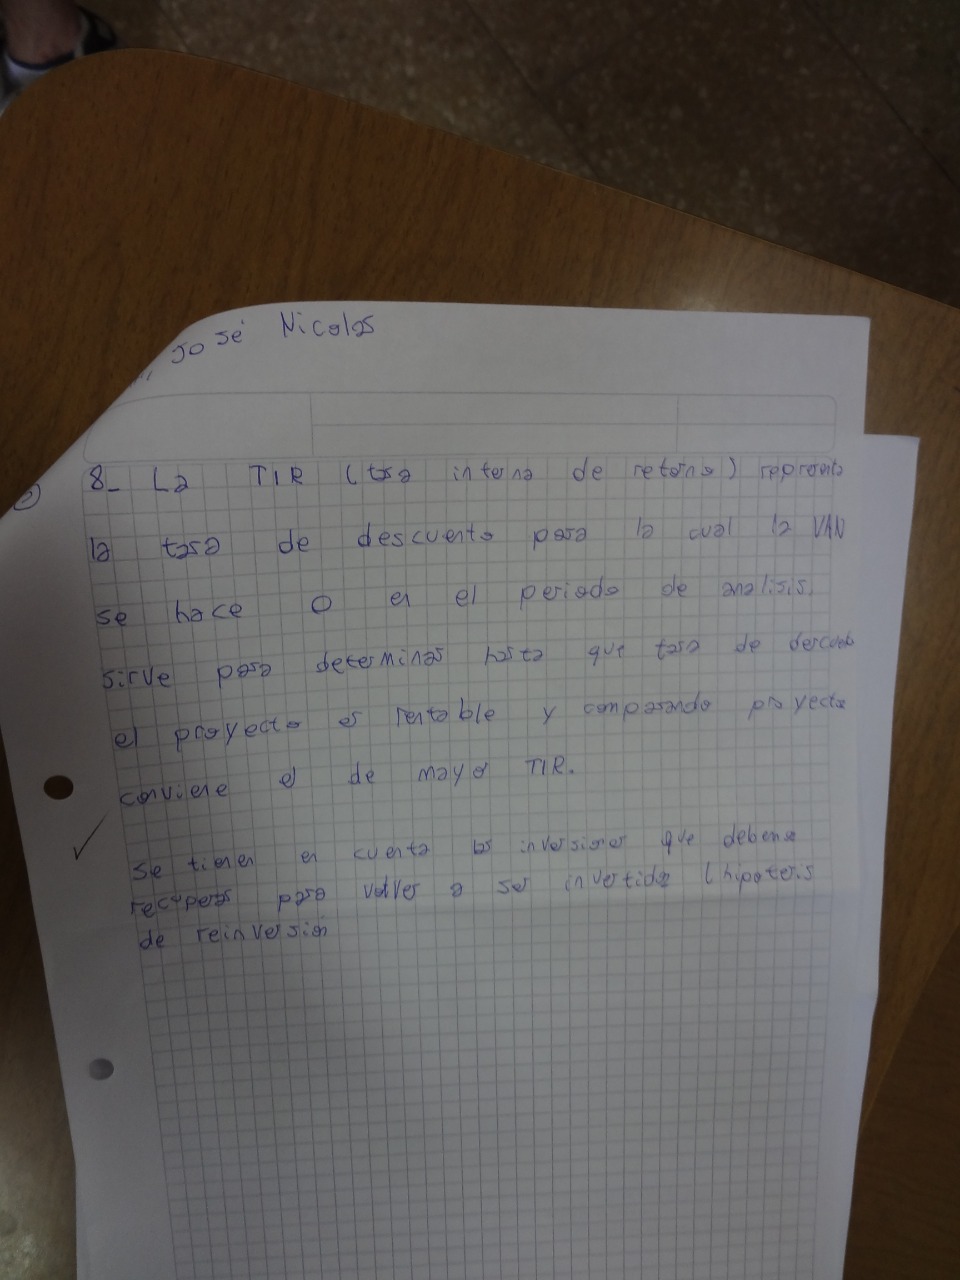 José Nicolas
8_ La TIR (tasa interna de retorno) representa
la tasa de descuento para la cual la VAN
se hace 0 en el periodo de analisis.
sirve para determinar hasta que tasa de descuento
el proyecto es rentable y comparando proyecto
conviene el de mayor TIR.
se tienen en cuenta las inversiones que deben
recuperar para volver a ser invertida (hipotesis
de reinversión